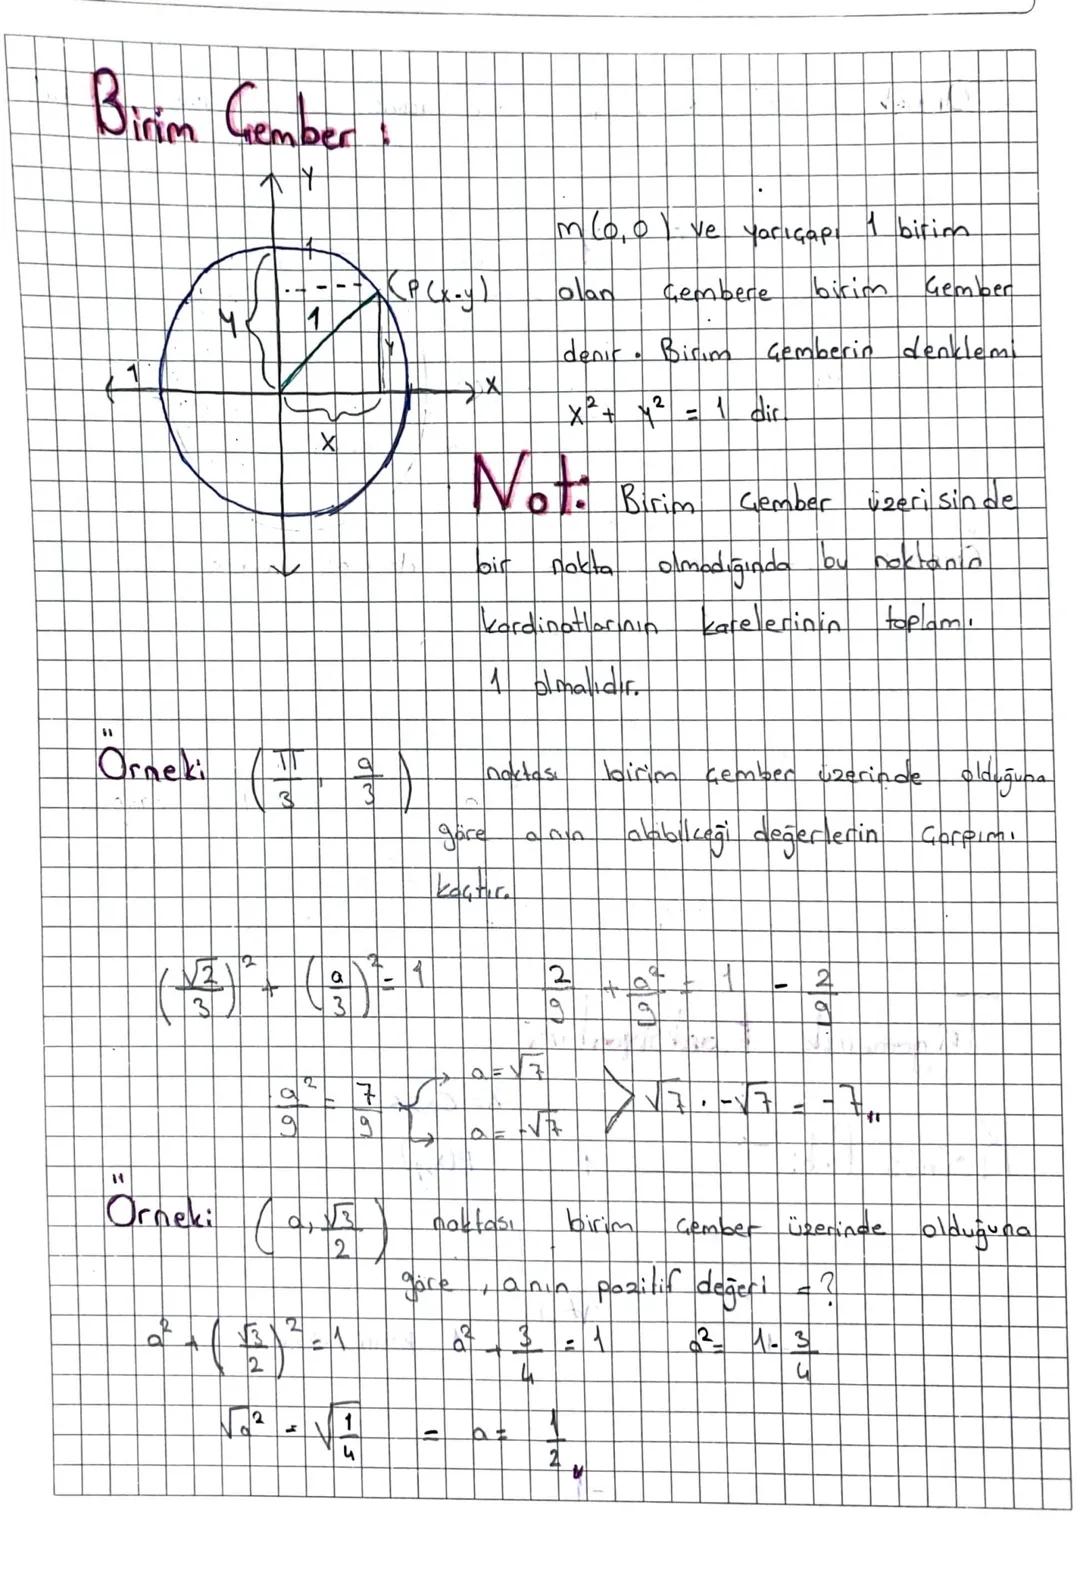 Birim Çember :
Y
1
P(x-y)
Y
1
Y
1
X
X
m(0,0) ve yarıçapı 1 birim
olan çembere birim Çember
denir. Birim çemberin denklemi
x² + y² = 1 dir.
Not: Birim Çember üzerisinde
bir nokta olmadığında bu noktanin
kordinatlarının karelerinin toplamı
1 olmalıdır.
Örnek: (π/3, a/3) noktası birim çember üzerinde olduğuna
göre anın alabilceği değerlerin Çarpımı
kaçtır.
(√2/3)² + (a/3)² = 1 2/9 + a²/9 = 1 - 2/9
a²/9 = 7/9 a = √7 a = -√7 > √7 . -√7 = -7,,
Örnek: (a, √3/2) noktası birim çember üzerinde olduğuna
göre, anın pozitif değeri = ?
a² + (√3/2)² = 1 a² + 3/4 = 1 a² = 1 - 3/4
√a² = √1/4 = a = 1/2,,